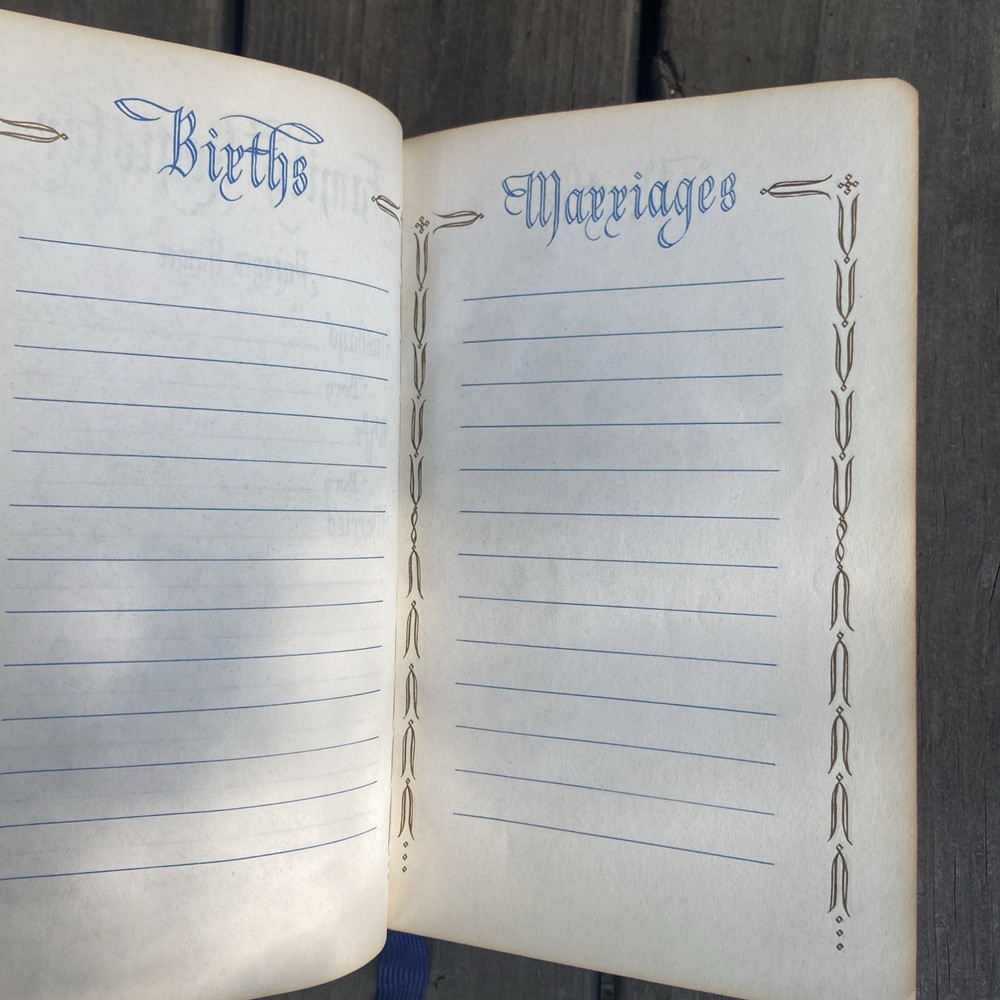 Births
Marriages